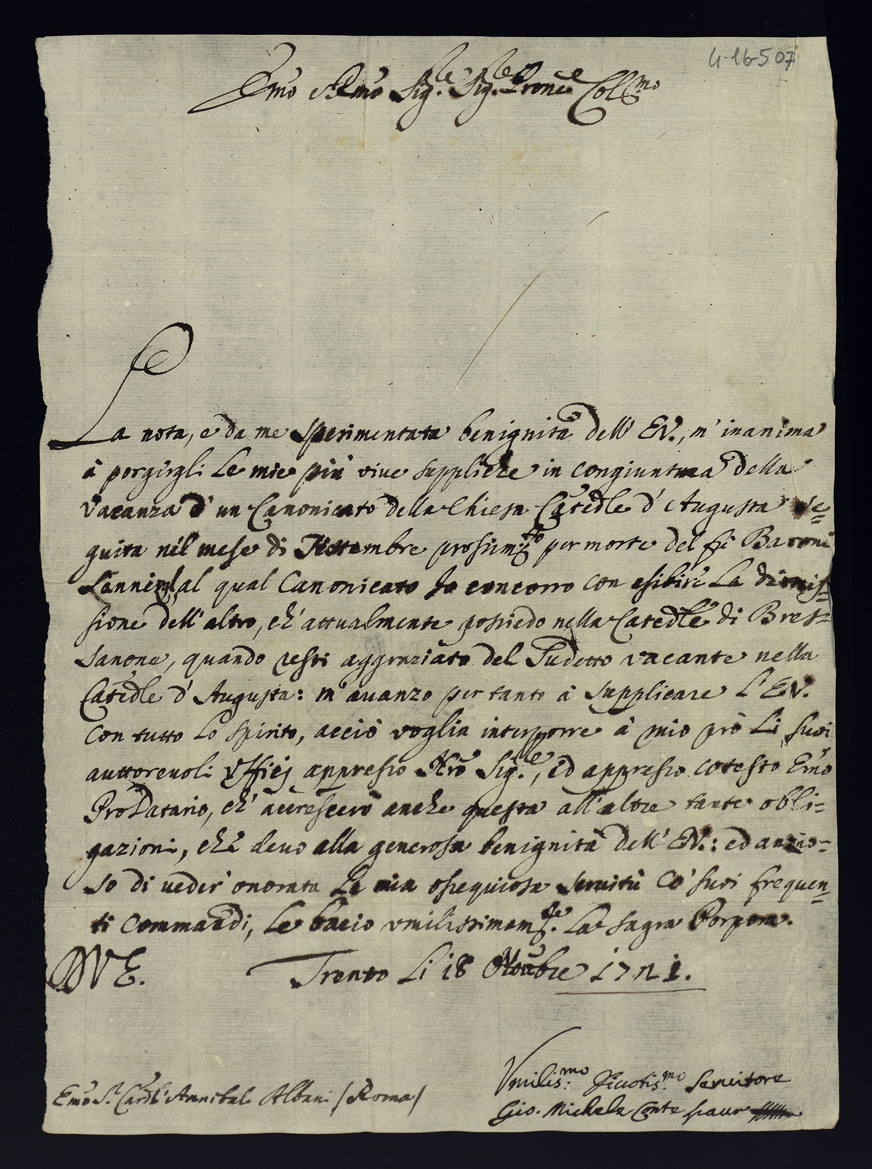 4-16-507
Emo e Rmo Sig.re Sig.re Prone Coll.mo
La nota, e da me sperimentata benignità dell' EV., m' inanima
à porgirgli le mie più vive suppliche in congiuntura della
vacanza d' un Canonicato della Chiesa Catedle d' Augusta se=
guita nel mese di Settembre prossim.te per morte del fù Barone
al qual Canonicato Io concorro con esibire la dimis=
sione dell' altro, ch' attualmente possiedo nella Catedle di Bres=
sanone, quando resti aggraziato del sudetto vacante nella
Catedle d' Augusta: m' avanzo per tanto à supplicare l' EV.
con tutto lo spirito, acciò voglia interporre à mio prò li suoi
auttorevoli Vfficj appresso Nro Sig.re, ed appresso cotesto Emo
ProDatario, ch' accrescerò anche questa all' altre tante obli=
gazioni, che devo alla generosa benignità dell' EV.: ed ansio=
so di veder' onorata la mia ossequiosa servitù co' suoi frequen=
ti Commandi, le bacio vmilissimam.te la sagra Porpora.
DVE. Trento li 18 1721.
Vmiliss.mo Divotis.mo Servitore
Emo S.r Cardl. Annibale Albani (Roma)
Gio. Michele Conte